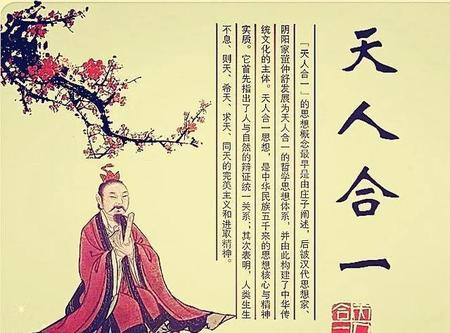 天人合一
「天人合一」的思想概念最早是由庄子阐述，后被汉代思想家、
阴阳家董仲舒发展为天人合一的哲学思想体系，并由此构建了中华传
统文化的主体。天人合一思想，是中华民族五千来的思想核心与精神
实质。它首先指出了人与自然的辩证统一关系；其次表明，人类生生
不息、则天、希天、求天、同天的完美主义和进取精神。